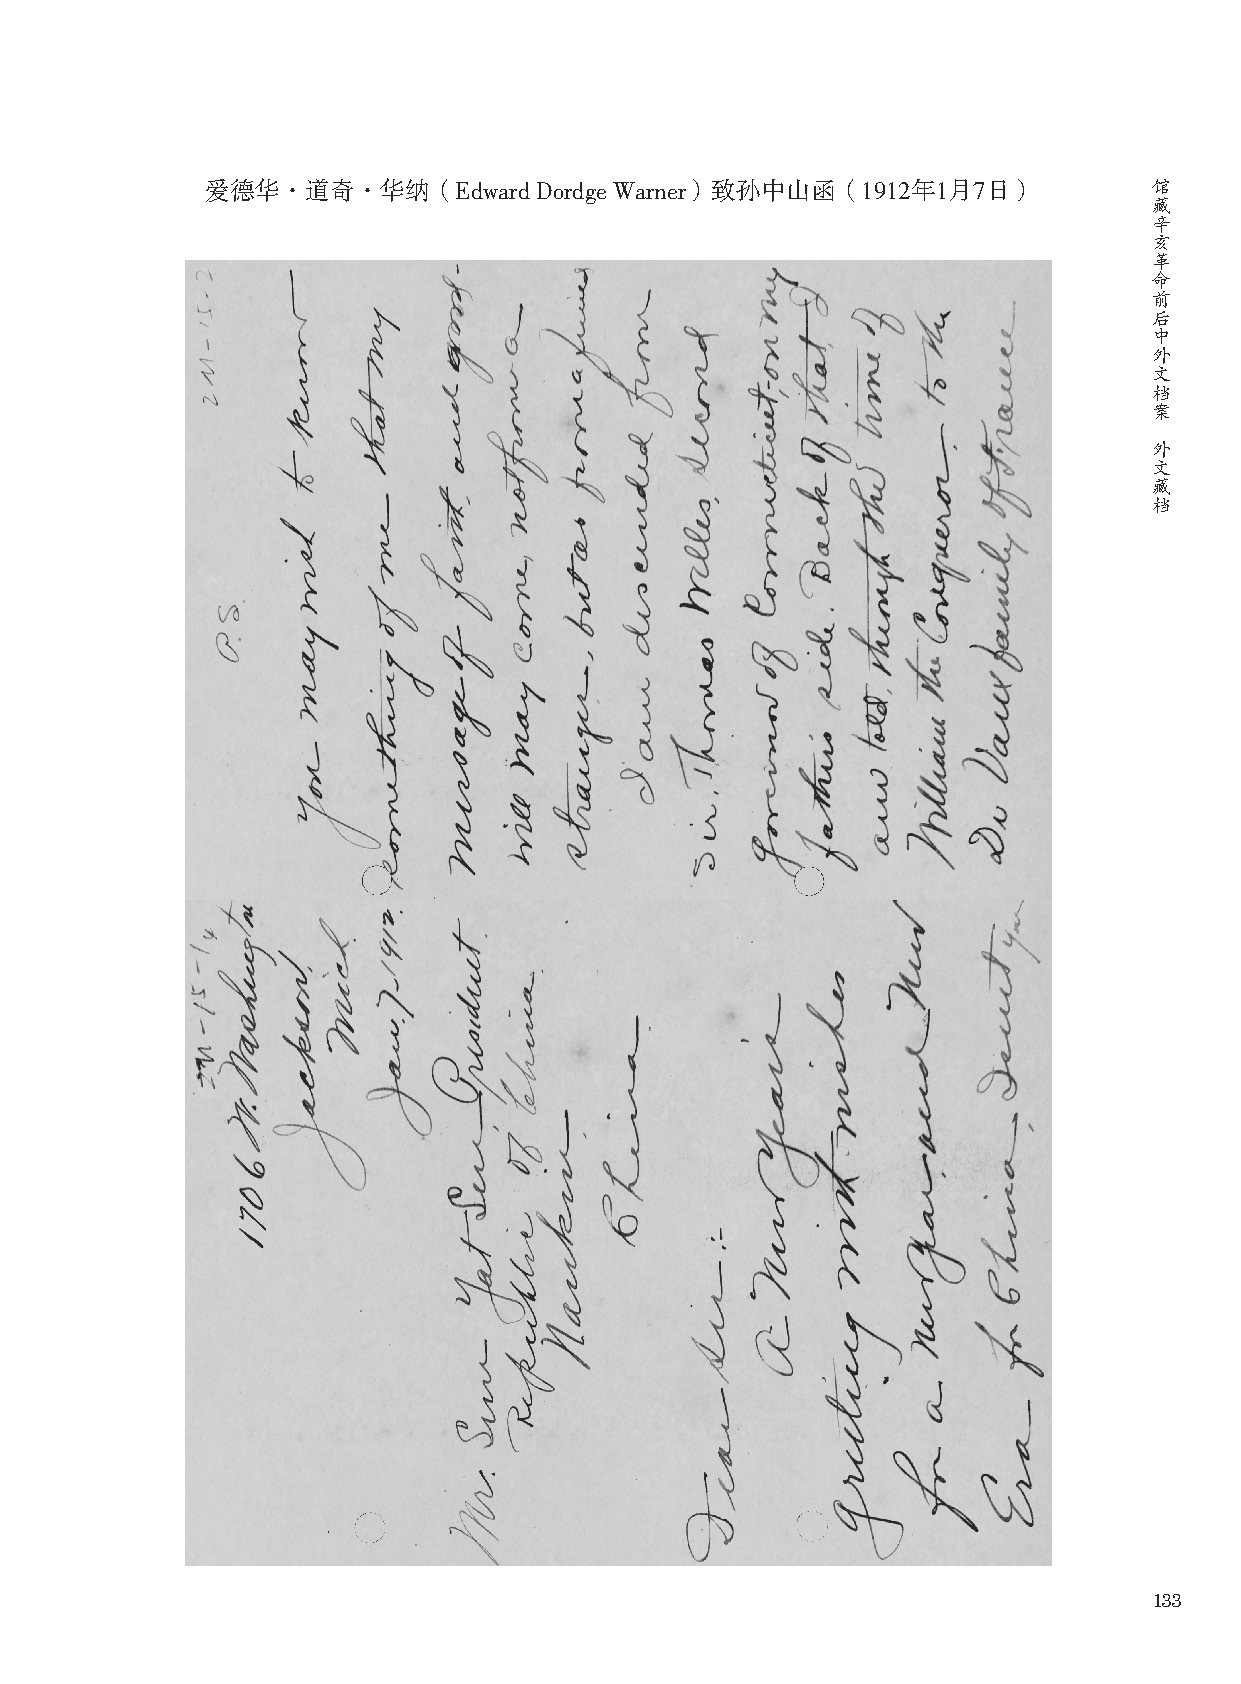 爱德华·道奇·华纳（Edward Dordge Warner）致孙中山函（1912年1月7日）
馆藏辛亥革命前后中外文档案 外文藏档
2M-15-14
1706 W. Washington
Jackson,
Mich.
Jan. 7-1912.
Mr. Sun Yat Sen, President
Republic of China
Nankin,
China
Dear Sir:-
A New Years
greeting with wishes
for a new year and New
Era for China. I sent you
2M-15-2
P.S.
You may wish to know
something of me that my
message of faith and good-
will may come, not from a
stranger, but as from a friend
I am descended from
Sir. Thomas Welles, second
Governor of Connecticut, on my
fathers side. Back of that I
am told, through the time of
William the Conqueror, to the
De Vaux family of France
133